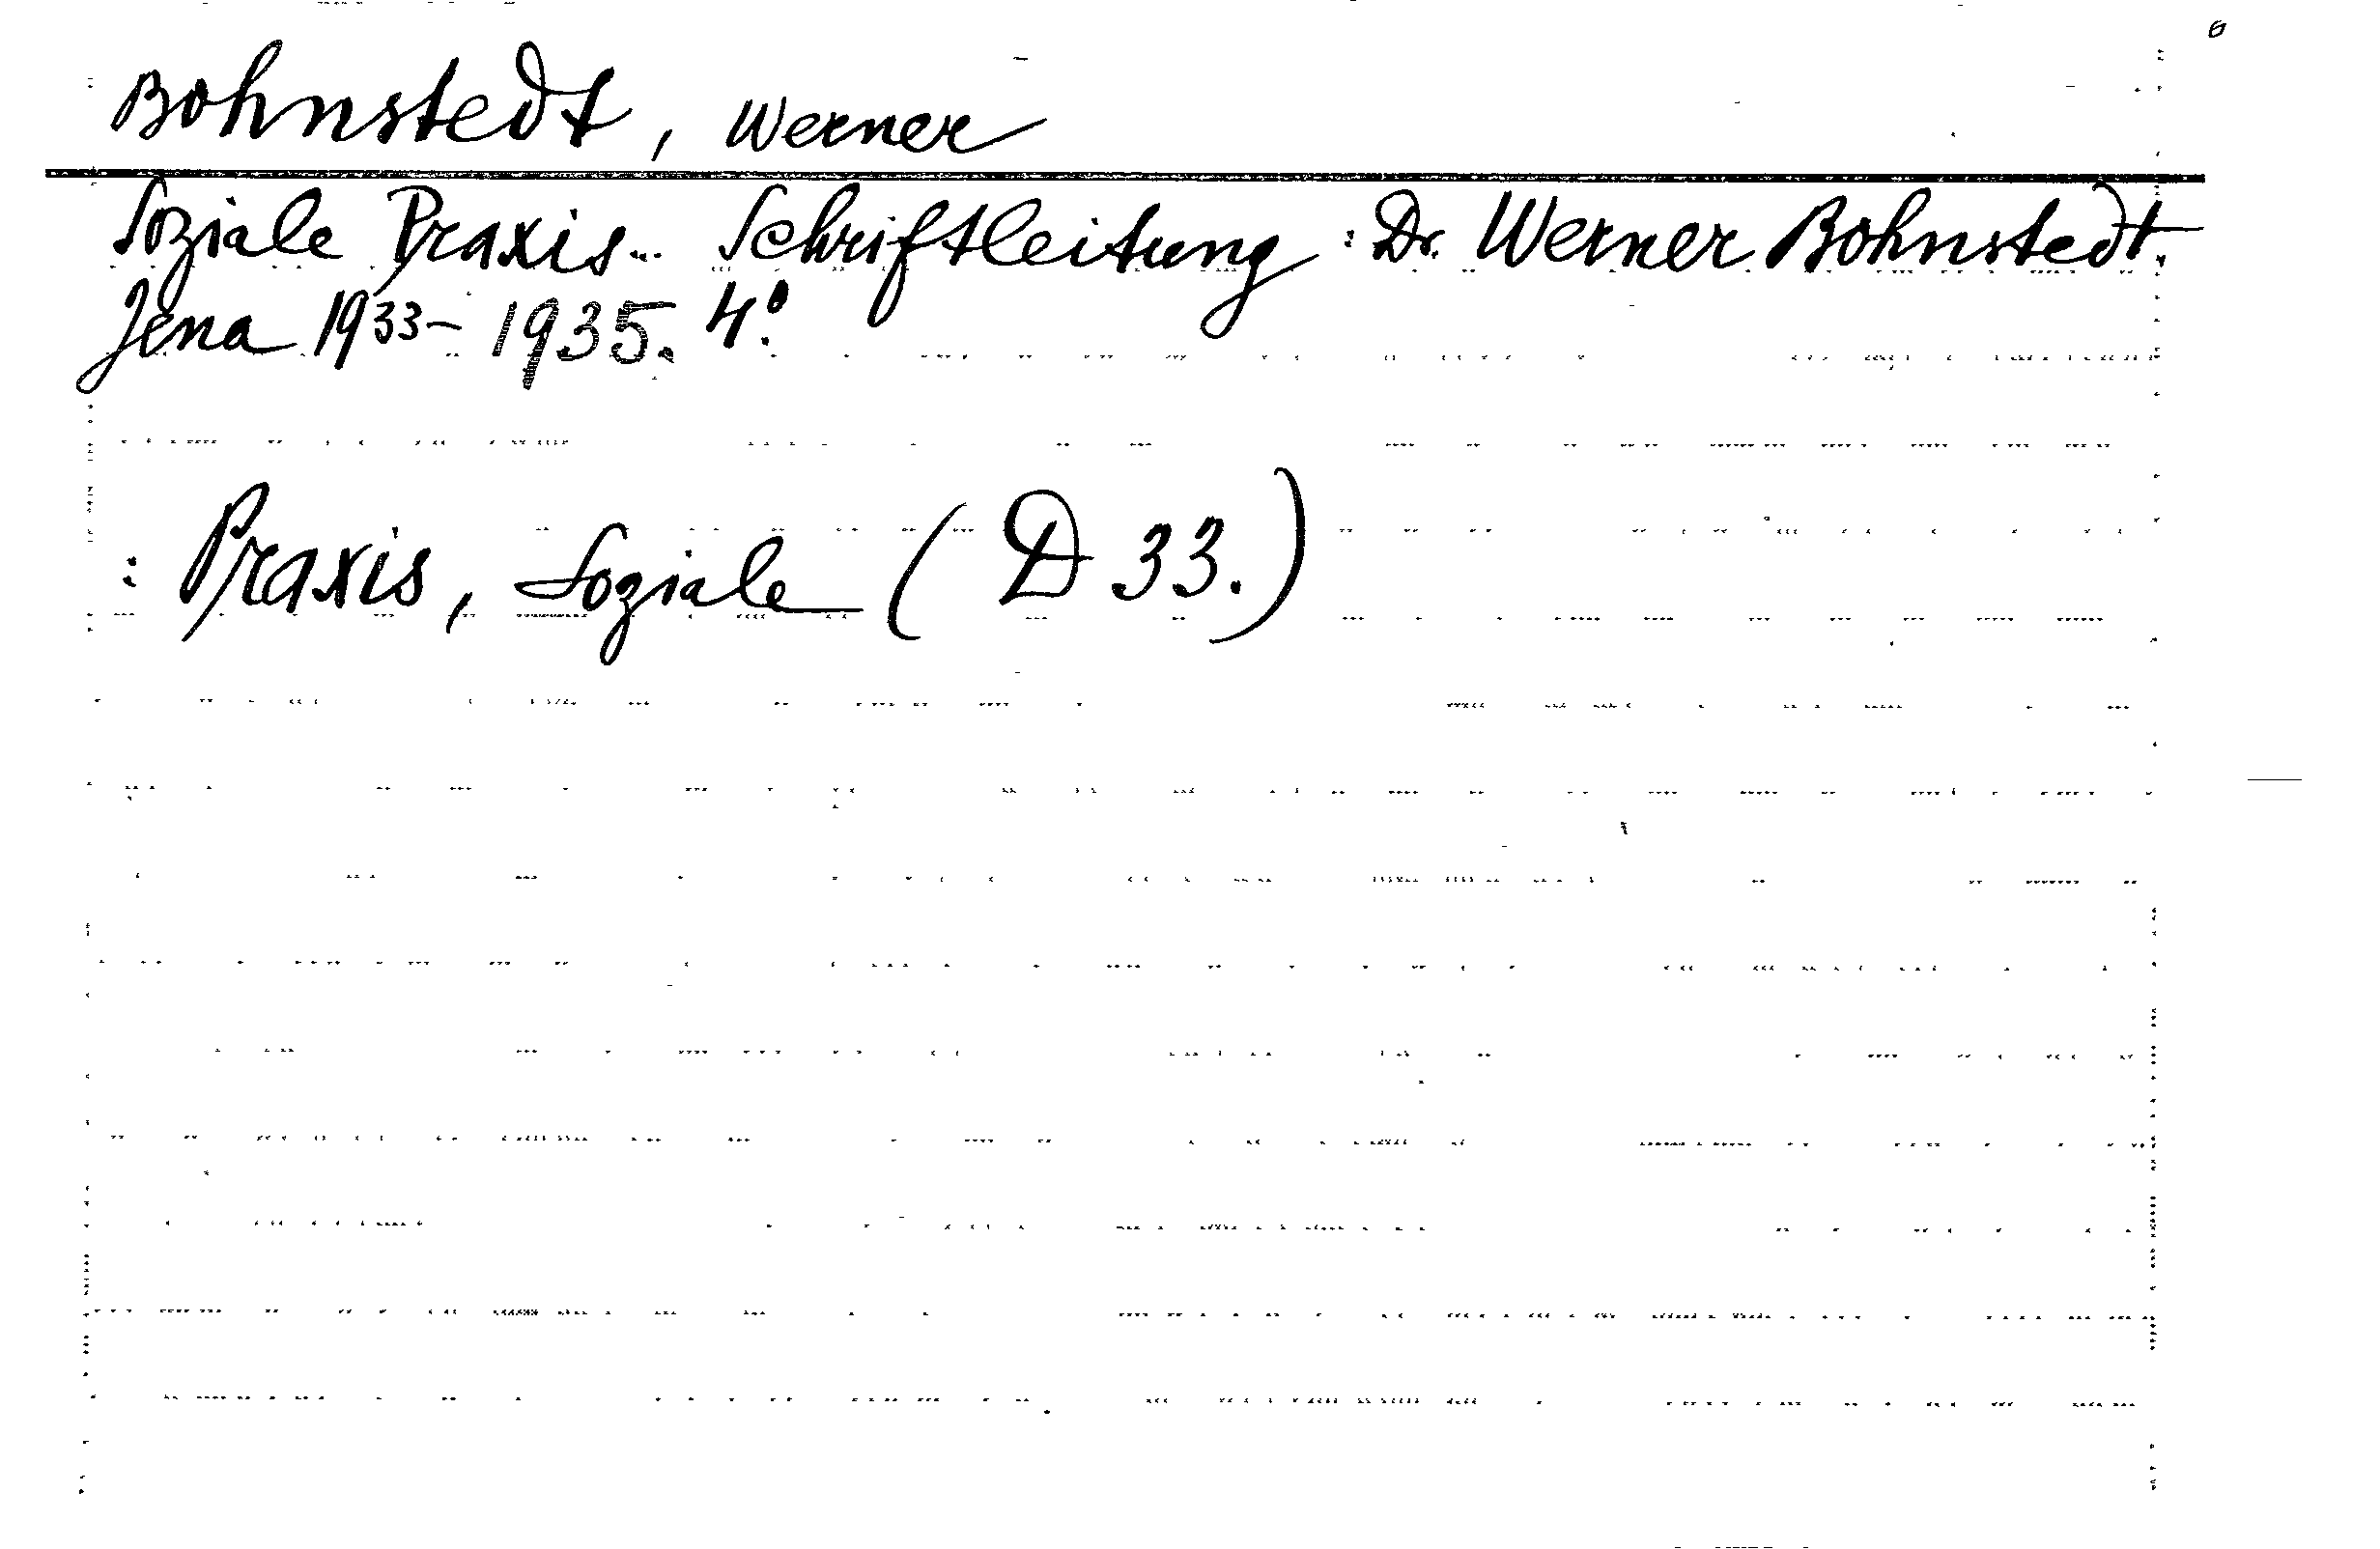 Bohnstedt, Werner
Soziale Praxis... Schriftleitung: Dr. Werner Bohnstedt.
Jena 1933-1935. 4°.
: Praxis, Soziale (D 33.)